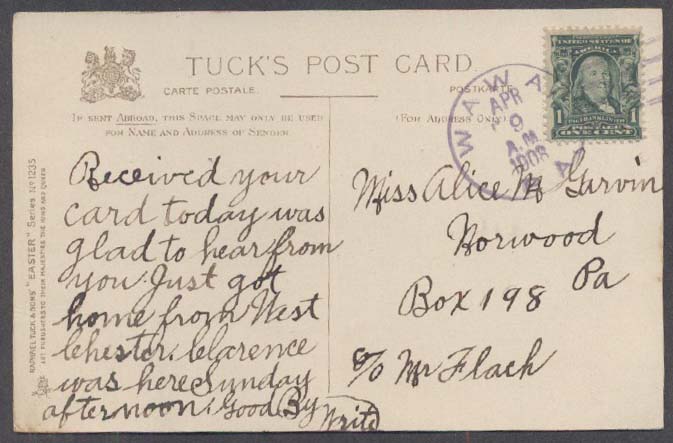 TUCK'S POST CARD
CARTE POSTALE. POSTKARTE
IF SENT ABROAD, THIS SPACE MAY ONLY BE USED
FOR NAME AND ADDRESS OF SENDER.
(FOR ADDRESS ONLY)
UNITED STATES OF
AMERICA
1 FRANKLIN 1
POSTAGE
ONE CENT
WAWA
APR
9
A.M.
1908
PA
Received your
card today was
glad to hear from
you. Just got
home from West
Chester. Clarence
was here Sunday
afternoon. Good By
Write
Miss Alice M Garvin
Norwood
Pa
Box 198
c/o Mr Flach
RAPHAEL TUCK & SONS' "EASTER" Series Nº 1235
ART PUBLISHERS TO THEIR MAJESTIES THE KING AND QUEEN